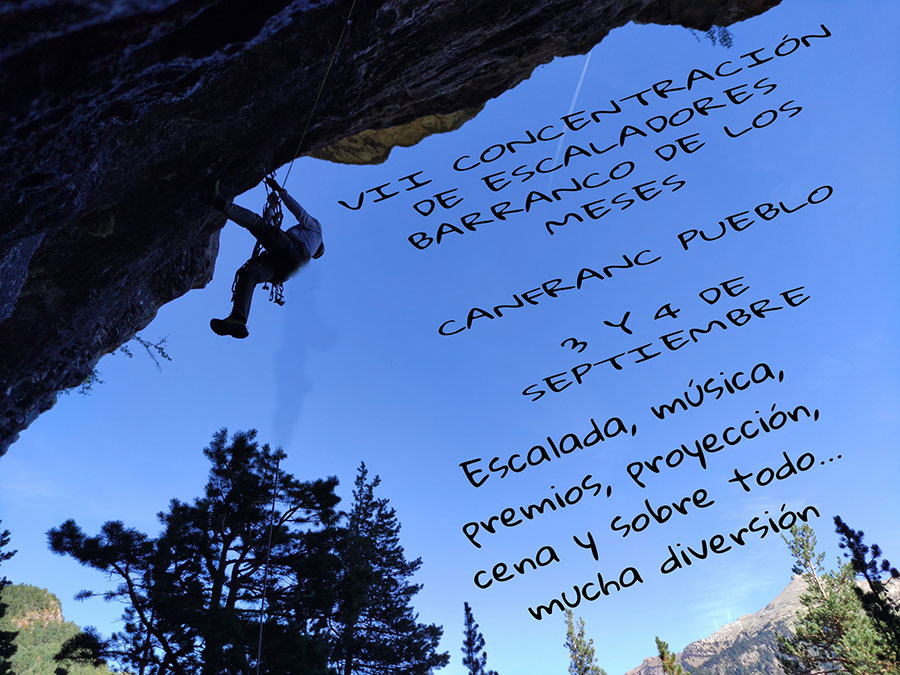 VII CONCENTRACIÓN
DE ESCALADORES
BARRANCO DE LOS
MESES
CANFRANC PUEBLO
3 Y 4 DE
SEPTIEMBRE
Escalada, música,
premios, proyección,
cena y sobre todo...
mucha diversión